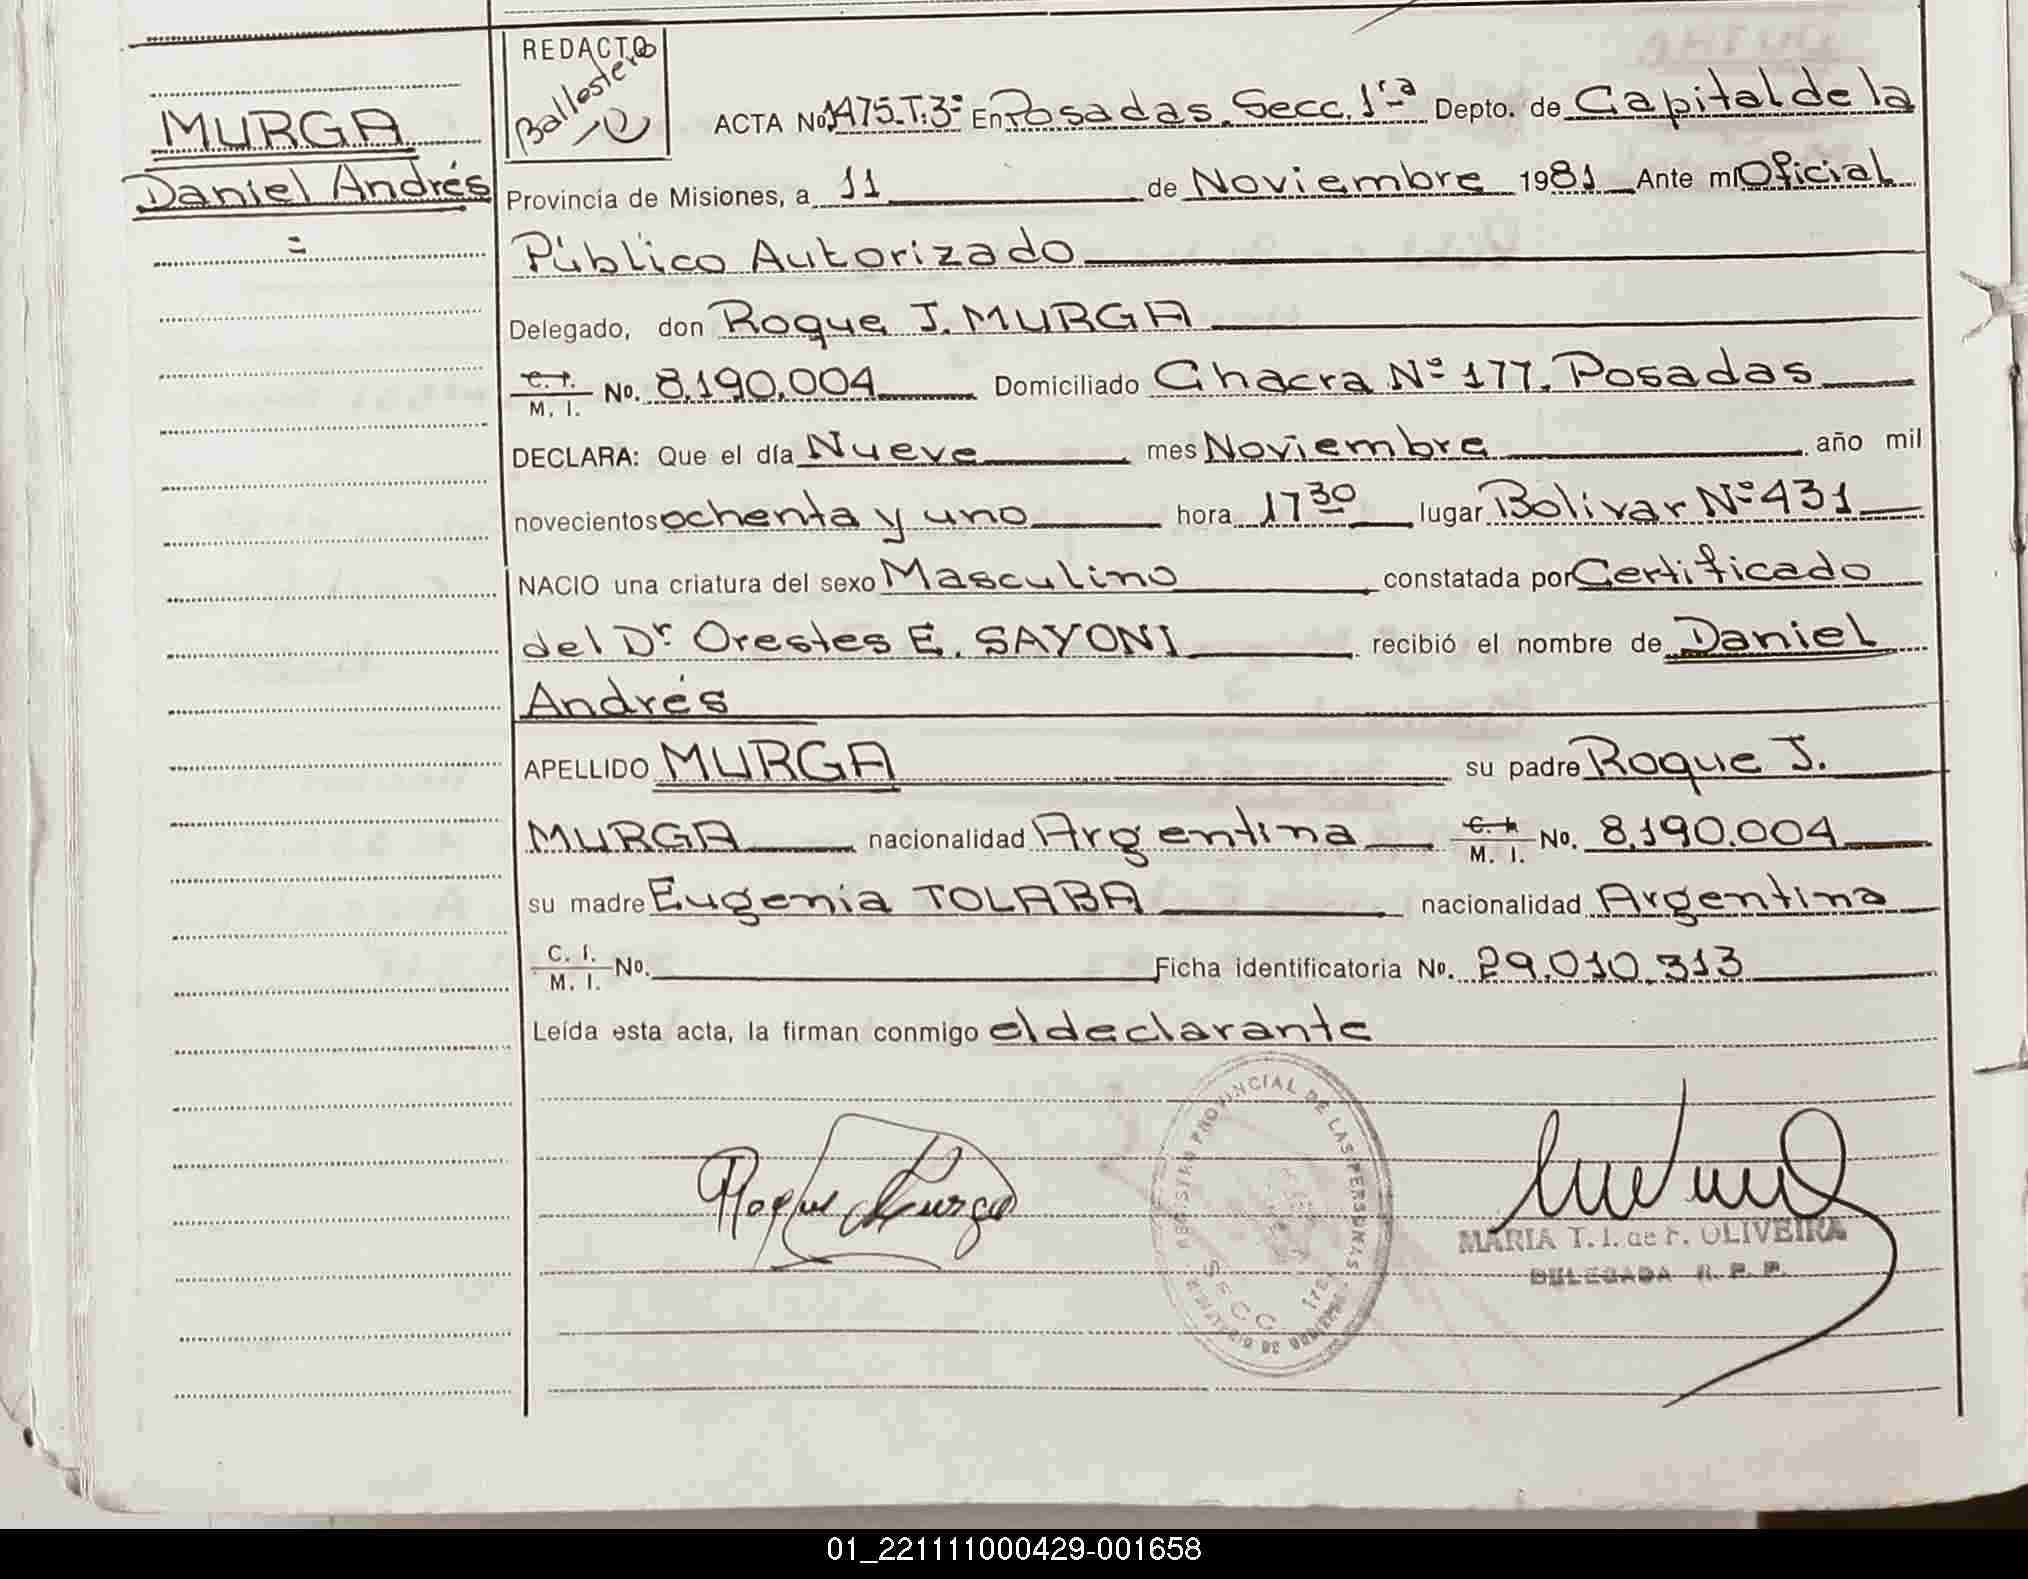 MURGA
Daniel Andrés
REDACTO
Ballestero
ACTA No 1475.T.3º En Posadas. Secc. 1ra Depto. de Capital de la
Provincia de Misiones, a 11 de Noviembre 1981 Ante mi Oficial
Público Autorizado
Delegado, don Roque J. MURGA
C. I. M. I. No. 8.190.004 Domiciliado Chacra Nº 177. Posadas
DECLARA: Que el día Nueve mes Noviembre año mil
novecientos ochenta y uno hora 17 30 lugar Bolivar Nº 431
NACIO una criatura del sexo Masculino constatada por Certificado
del Dr. Orestes E. SAYONI recibió el nombre de Daniel
Andrés
APELLIDO MURGA su padre Roque J.
MURGA nacionalidad Argentina C. I. M. I. No. 8.190.004
su madre Eugenia TOLABA nacionalidad Argentina
C. I. M. I. No. Ficha identificatoria No. 29.010.313
Leída esta acta, la firman conmigo el declarante
Roque Murga
REGISTRO PROVINCIAL DE LAS PERSONAS
SECC. 1ra
MARIA T. I. de F. OLIVEIRA
DELEGADA R. P. P.
01_221111000429-001658